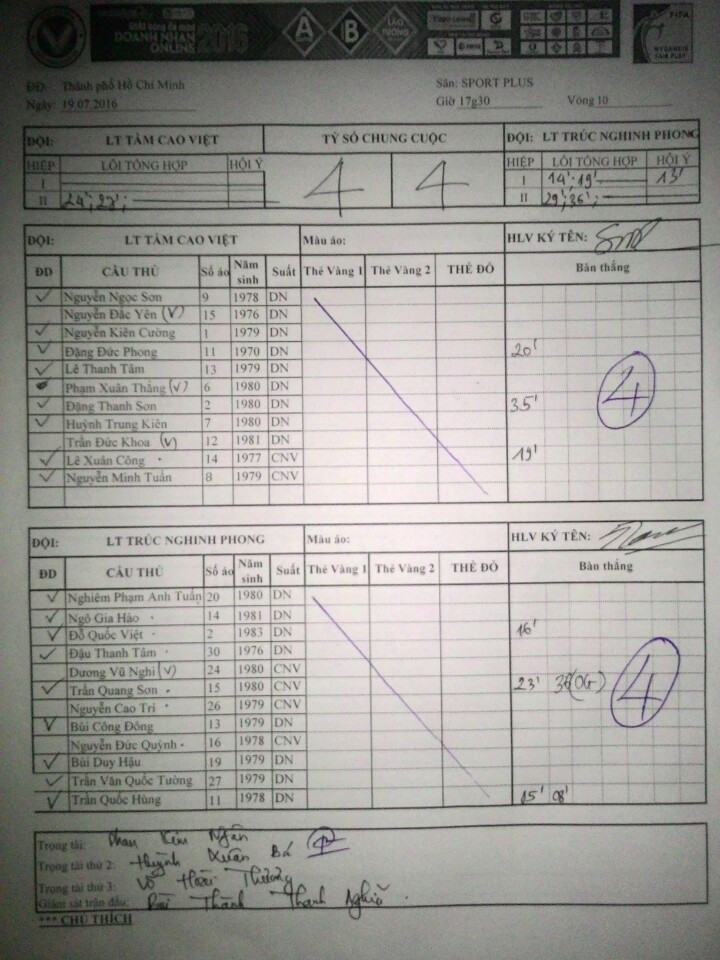 DOANH NHÂN
ONLINE 2016
A B
FIFA
MY GAME IS
FAIR PLAY
ĐĐ: Thành phố Hồ Chí Minh Sân: SPORT PLUS
Ngày: 19.07.2016 Giờ 17g30 Vòng 10
ĐỘI: LT TÂM CAO VIỆT TỶ SỐ CHUNG CUỘC ĐỘI: LT TRÚC NGHINH PHONG
HIỆP LỖI TỔNG HỢP HỘI Ý 4 4 HIỆP LỖI TỔNG HỢP HỘI Ý
I I 14'; 19' 13'
II 24'; 27'; II 29'; 36';
ĐỘI: LT TÂM CAO VIỆT Màu áo: HLV KÝ TÊN:
ĐD CẦU THỦ Số áo Năm sinh Suất Thẻ Vàng 1 Thẻ Vàng 2 THẺ ĐỎ Bàn thắng
Nguyễn Ngọc Sơn 9 1978 DN
Nguyễn Đắc Yên (V) 15 1976 DN
Nguyễn Kiên Cường 1 1979 DN
Đặng Đức Phong 11 1970 DN 20'
Lê Thanh Tâm 13 1979 DN
Phạm Xuân Thắng (V) 6 1980 DN
Đặng Thanh Sơn 2 1980 DN 35'
Huỳnh Trung Kiên 7 1980 DN
Trần Đức Khoa (V) 12 1981 DN
Lê Xuân Công 14 1977 CNV 19'
Nguyễn Minh Tuấn 8 1979 CNV
4
ĐỘI: LT TRÚC NGHINH PHONG Màu áo: HLV KÝ TÊN:
ĐD CẦU THỦ Số áo Năm sinh Suất Thẻ Vàng 1 Thẻ Vàng 2 THẺ ĐỎ Bàn thắng
Nghiêm Phạm Anh Tuấn 20 1980 DN
Ngô Gia Hào 14 1981 DN
Đỗ Quốc Việt 2 1983 DN 16'
Đậu Thanh Tâm 30 1976 DN
Dương Vũ Nghi (V) 24 1980 CNV
Trần Quang Sơn 15 1980 CNV 23' 36'(OG)
Nguyễn Cao Trí 26 1979 CNV
Bùi Công Đông 13 1979 DN
Nguyễn Đức Quỳnh 16 1978 CNV
Bùi Duy Hậu 19 1979 DN
Trần Văn Quốc Tường 27 1979 DN
Trần Quốc Hùng 11 1978 DN 15' 08'
4
Trọng tài: Phan Kim Ngân
Trọng tài thứ 2: Huỳnh Xuân Bá
Trọng tài thứ 3: Võ Hoài Thương
Giám sát trận đấu: Bùi Thành Thanh
*** CHÚ THÍCH